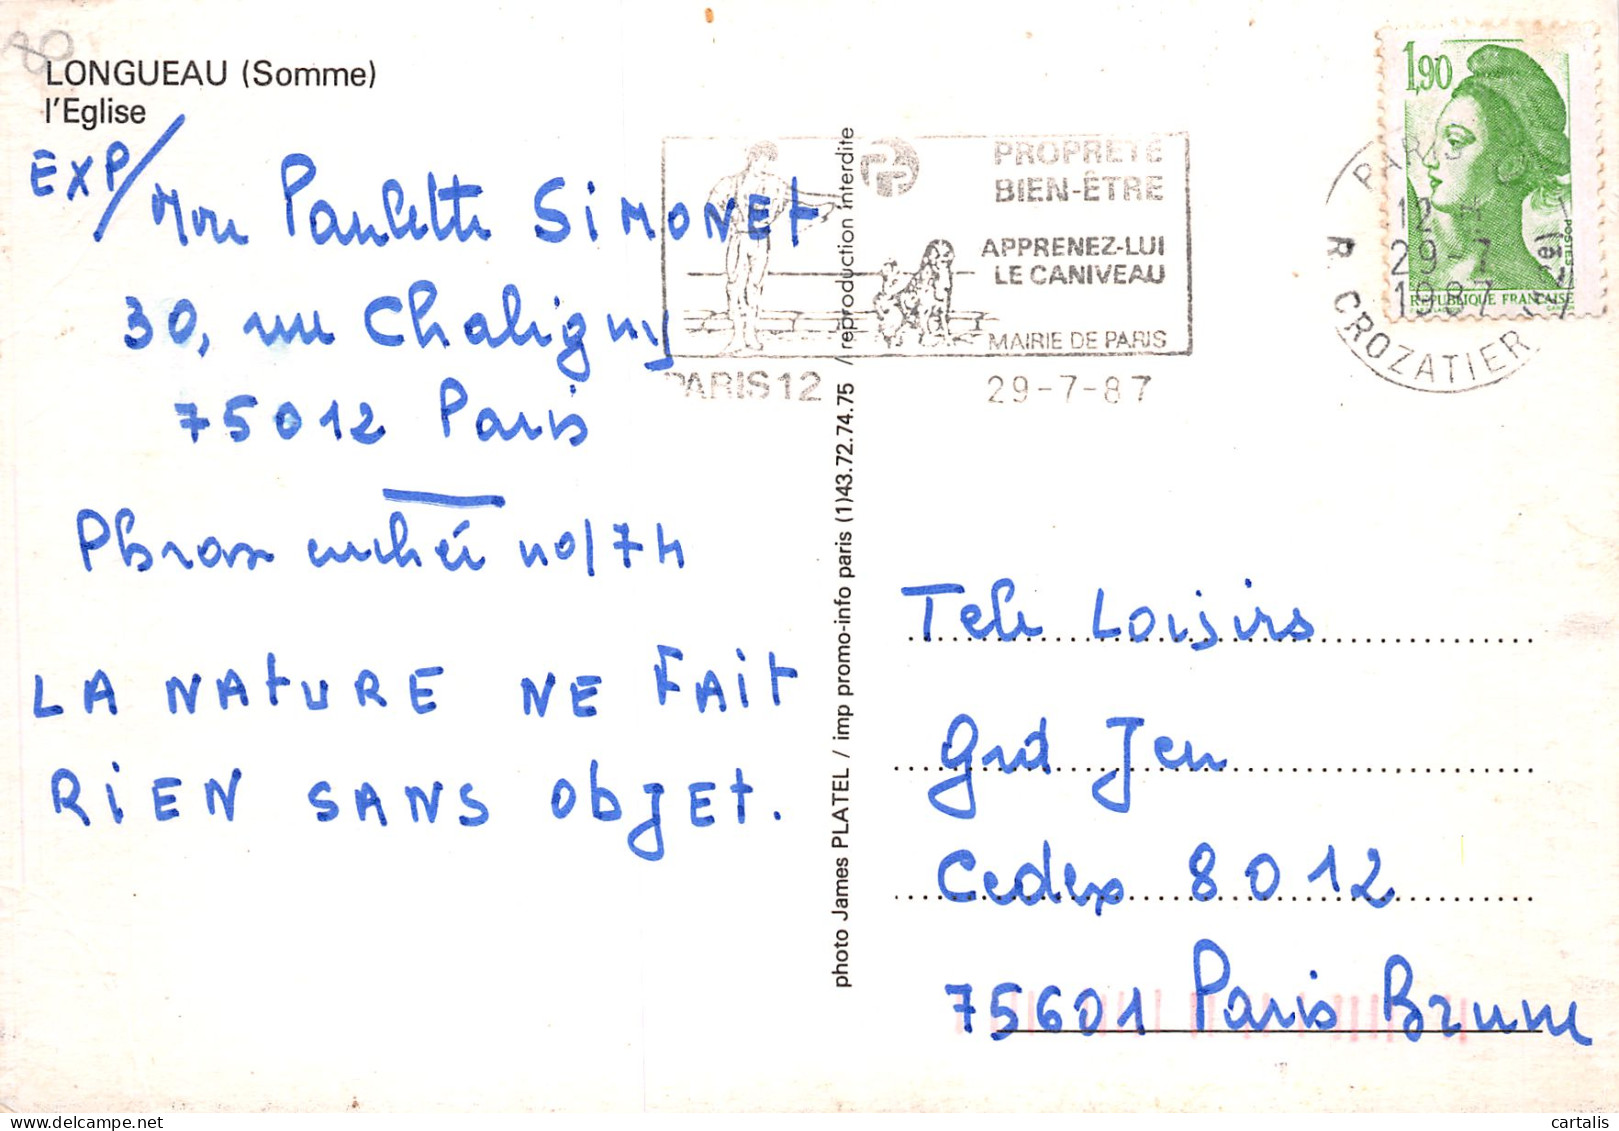 80
LONGUEAU (Somme)
l'Eglise
EXP/
Mme Paulette SIMONET
30, rue Chaligny
75012 Paris
Phrase cachée no/74
LA NATURE NE FAIT
RIEN SANS ObJET.
photo James PLATEL / imp promo-info paris (1)43.72.74.75 / reproduction interdite
PROPRETE
BIEN-ÊTRE
APPRENEZ-LUI
LE CANIVEAU
MAIRIE DE PARIS
PARIS 12
29-7-87
1,90
POSTES
REPUBLIQUE FRANCAISE
PARIS
12 H
29-7
1987
R CROZATIER
Tele Loisirs
Grd Jeu
Cedex 8012
75601 Paris Brune
cartalis